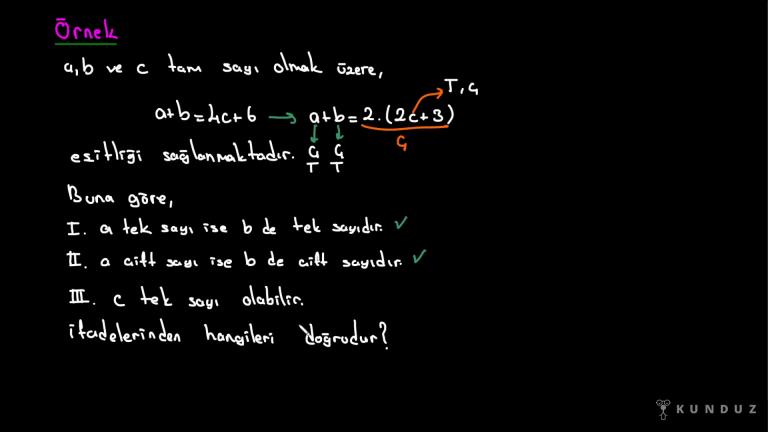 Örnek
a,b ve c tam sayı olmak üzere,
T,Ç
a+b=4c+6 → a+b=2.(2c+3)
Ç Ç Ç
eşitliği sağlanmaktadır. T T
Buna göre,
I. a tek sayı ise b de tek sayıdır. ✓
II. a çift sayı ise b de çift sayıdır. ✓
III. c tek sayı olabilir.
ifadelerinden hangileri doğrudur?
KUNDUZ